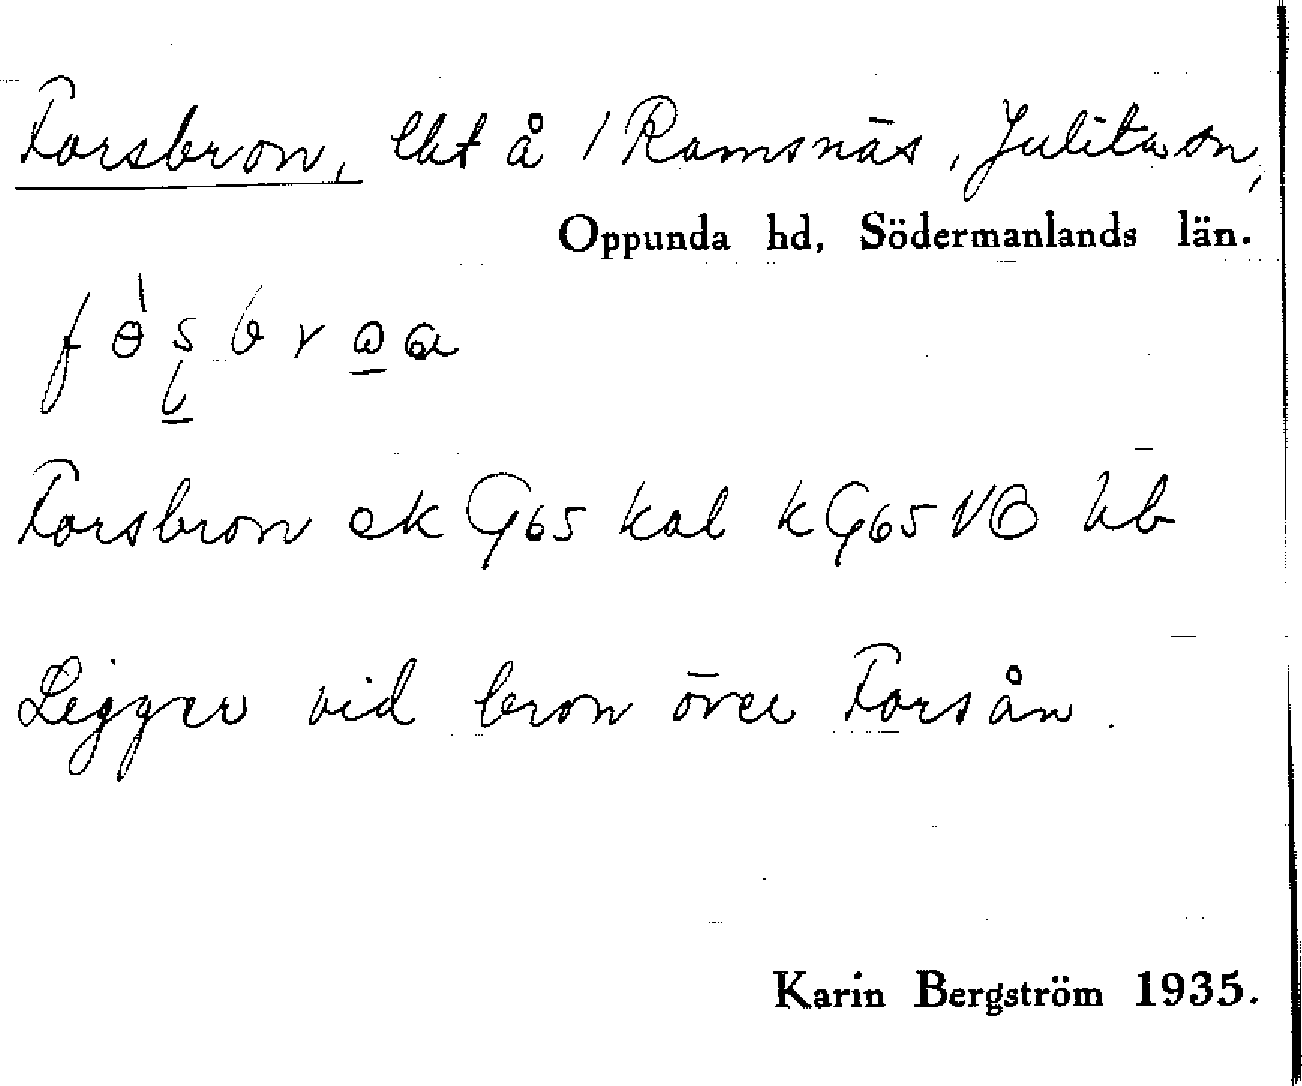 Forsbron, lht å /Ramsnäs, Julita sn,
Oppunda hd, Södermanlands län.
Forsbron ek G65 kal k G65 NB Hb
Ligger vid bron över Forsån.
Karin Bergström 1935.